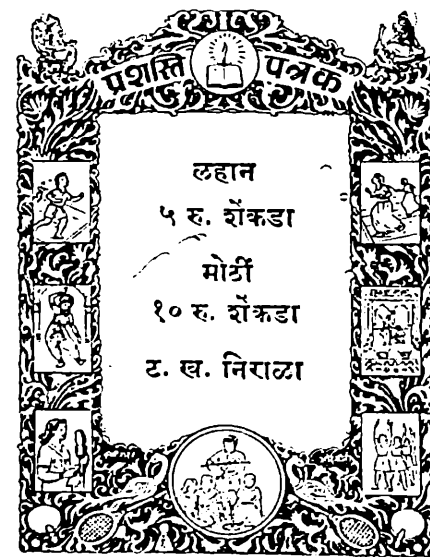 प्रशस्ति पत्रक
लहान
५ रु. शेंकडा
मोठीं
१० रु. शेंकडा
ट. ख. निराळा